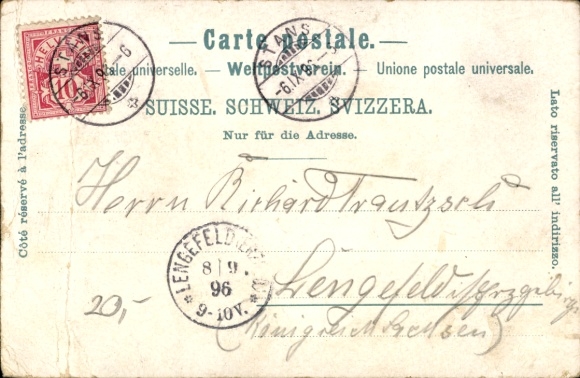 Carte postale.
Union postale universelle. — Weltpostverein. — Unione postale universale.
SUISSE. SCHWEIZ. SVIZZERA.
Nur für die Adresse.
Côté réservé à l'adresse.
Lato riservato all' indirizzo.
HELVETIA
10
STANS
-6.IX.96.-6
STANS
-6.IX.96.-6
Herrn Richard Trautzsch
LENGEFELD
8|9
96
*9-10V.*
Lengefeld i/Erzgebirge
(Königreich Sachsen)
20,-